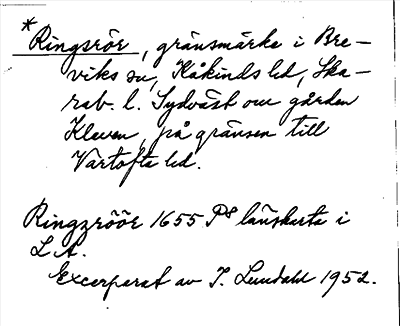 *Ringsrör, gränsmärke i Bre-
viks sn, Kåkinds hd, Ska-
rab. l. Sydväst om gården
Kleven, på gränsen till
Vartofta hd.
Ringzröör 1655 P8 länskarta i
LA.
Excerperat av I. Lundahl 1952.